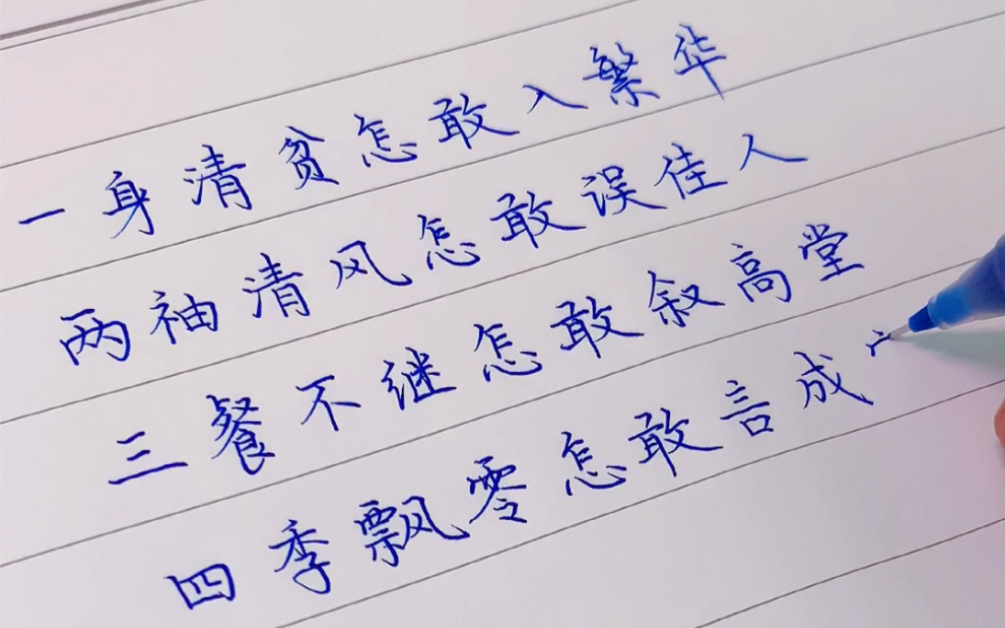 一身清贫怎敢入繁华
两袖清风怎敢误佳人
三餐不继怎敢叙高堂
四季飘零怎敢言成